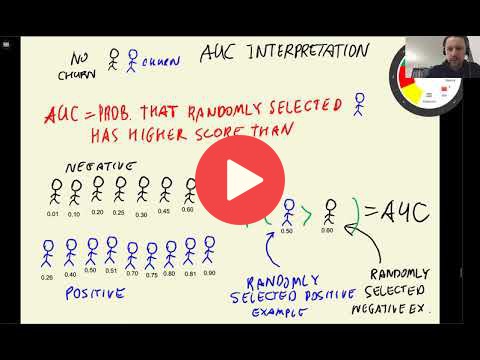 NO
CHURN
CHURN
AUC INTERPRETATION
AUC = PROB. THAT RANDOMLY SELECTED
HAS HIGHER SCORE THAN
NEGATIVE
0.01 0.10 0.20 0.25 0.30 0.45 0.60
0.50 > 0.60 ) = AUC
0.26 0.40 0.50 0.51 0.70 0.75 0.80 0.81 0.90
POSITIVE
RANDOMLY
SELECTED POSITIVE
EXAMPLE
RANDOMLY
SELECTED
NEGATIVE EX.